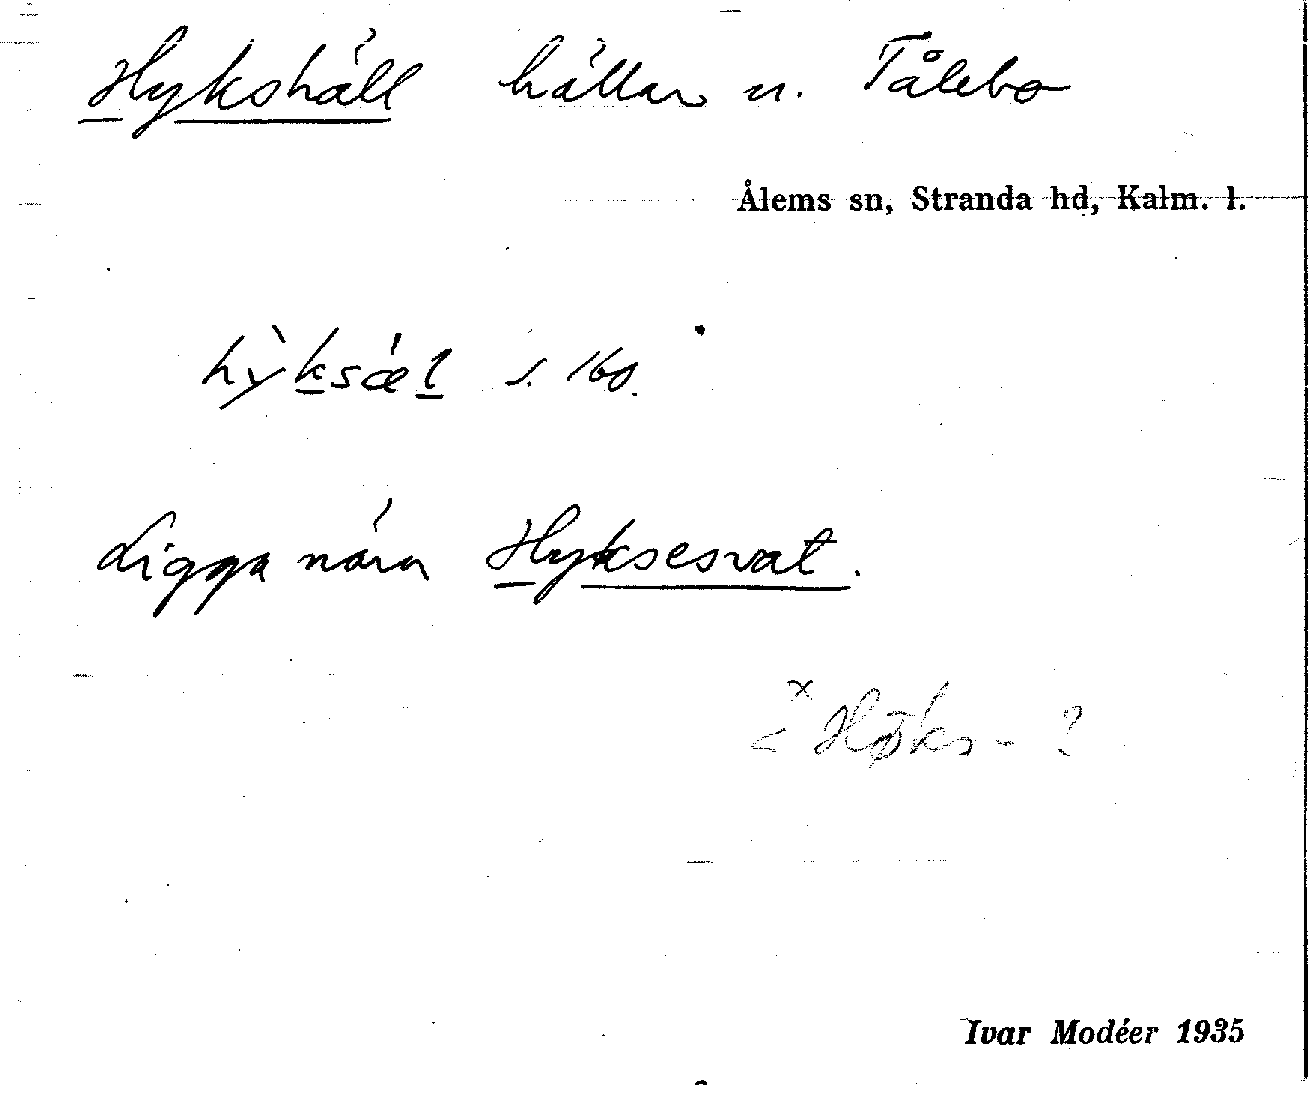 Hykshäll hällar u. Tålebo
Ålems sn, Stranda hd, Kalm. l.
hỳksæ̀l s. 160.
Ligga nära Hyksesvat.
< ˣHøks- ?
Ivar Modéer 1935